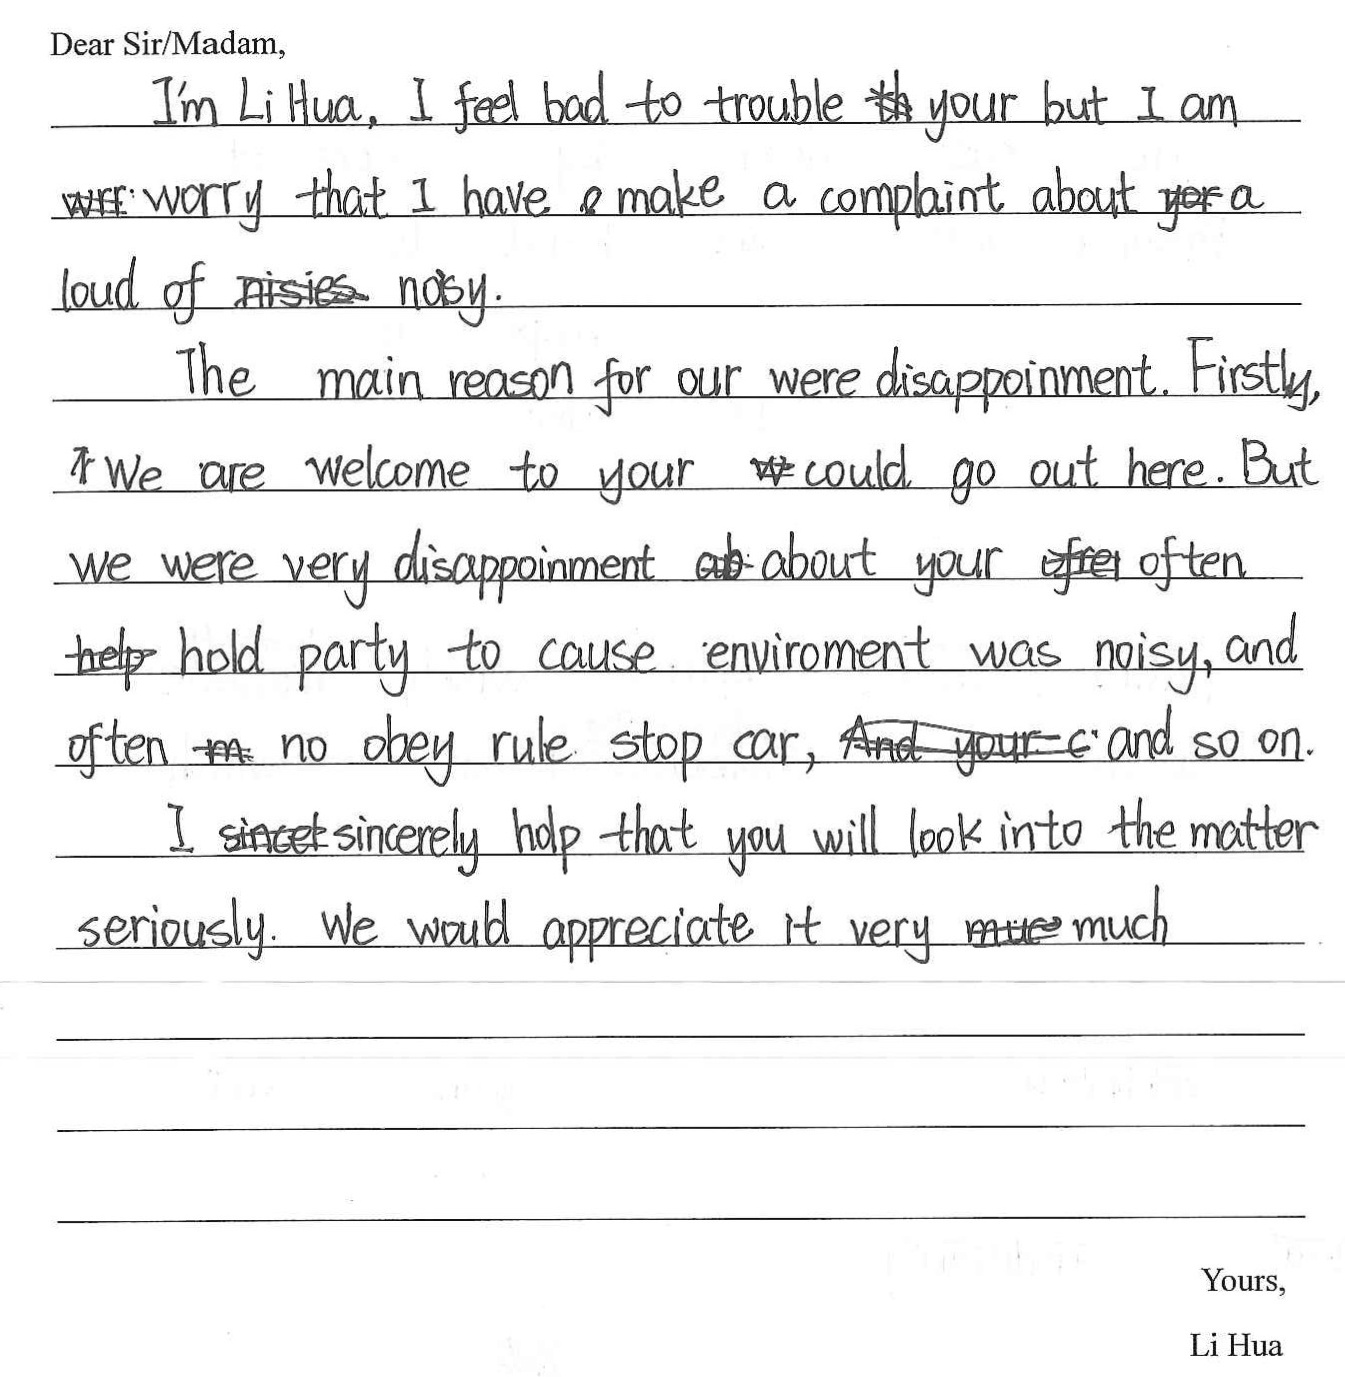 Dear Sir/Madam,
I'm Li Hua, I feel bad to trouble your but I am
worry that I have make a complaint about a
loud of noisy.
The main reason for our were disappoinment. Firstly,
We are welcome to your could go out here. But
we were very disappoinment about your often
hold party to cause enviroment was noisy, and
often no obey rule stop car, and so on.
I sincerely holp that you will look into the matter
seriously. We would appreciate it very much
Yours,
Li Hua